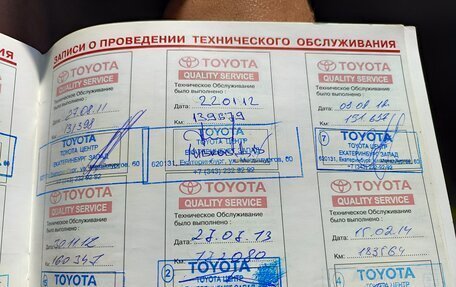 ЗАПИСИ О ПРОВЕДЕНИИ ТЕХНИЧЕСКОГО ОБСЛУЖИВАНИЯ
TOYOTA
QUALITY SERVICE
Техническое Обслуживание
было выполнено:
Дата: 07.08.11
Км:
TOYOTA
ТОЙОТА ЦЕНТР
ЕКАТЕРИНБУРГ ЗАПАД
TOYOTA
QUALITY SERVICE
Техническое Обслуживание
было выполнено:
Дата: 22.01.12
Км: 139579
ТОЙОТА ЦЕНТР
620131, Екатеринбург, ул. Металлургов, 60
+7 (343) 232 92 92
TOYOTA
QUALITY SERVICE
Техническое Обслуживание
было выполнено:
Дата:
Км:
7
TOYOTA
ТОЙОТА ЦЕНТР
ЕКАТЕРИНБУРГ ЗАПАД
620131, Екатеринбург, ул. Металлургов, 60
+7 (343) 232 92 92
TOYOTA
QUALITY SERVICE
Техническое Обслуживание
было выполнено:
30.11.12
Км: 160347
TOYOTA
ТОЙОТА ЦЕНТР
TOYOTA
QUALITY SERVICE
Техническое Обслуживание
было выполнено:
Дата:
Км:
2
TOYOTA
TOYOTA
QUALITY SERVICE
Техническое Обслуживание
было выполнено:
Дата: 15.02.14
Км: 183564
TOYOTA
ТОЙОТА ЦЕНТР